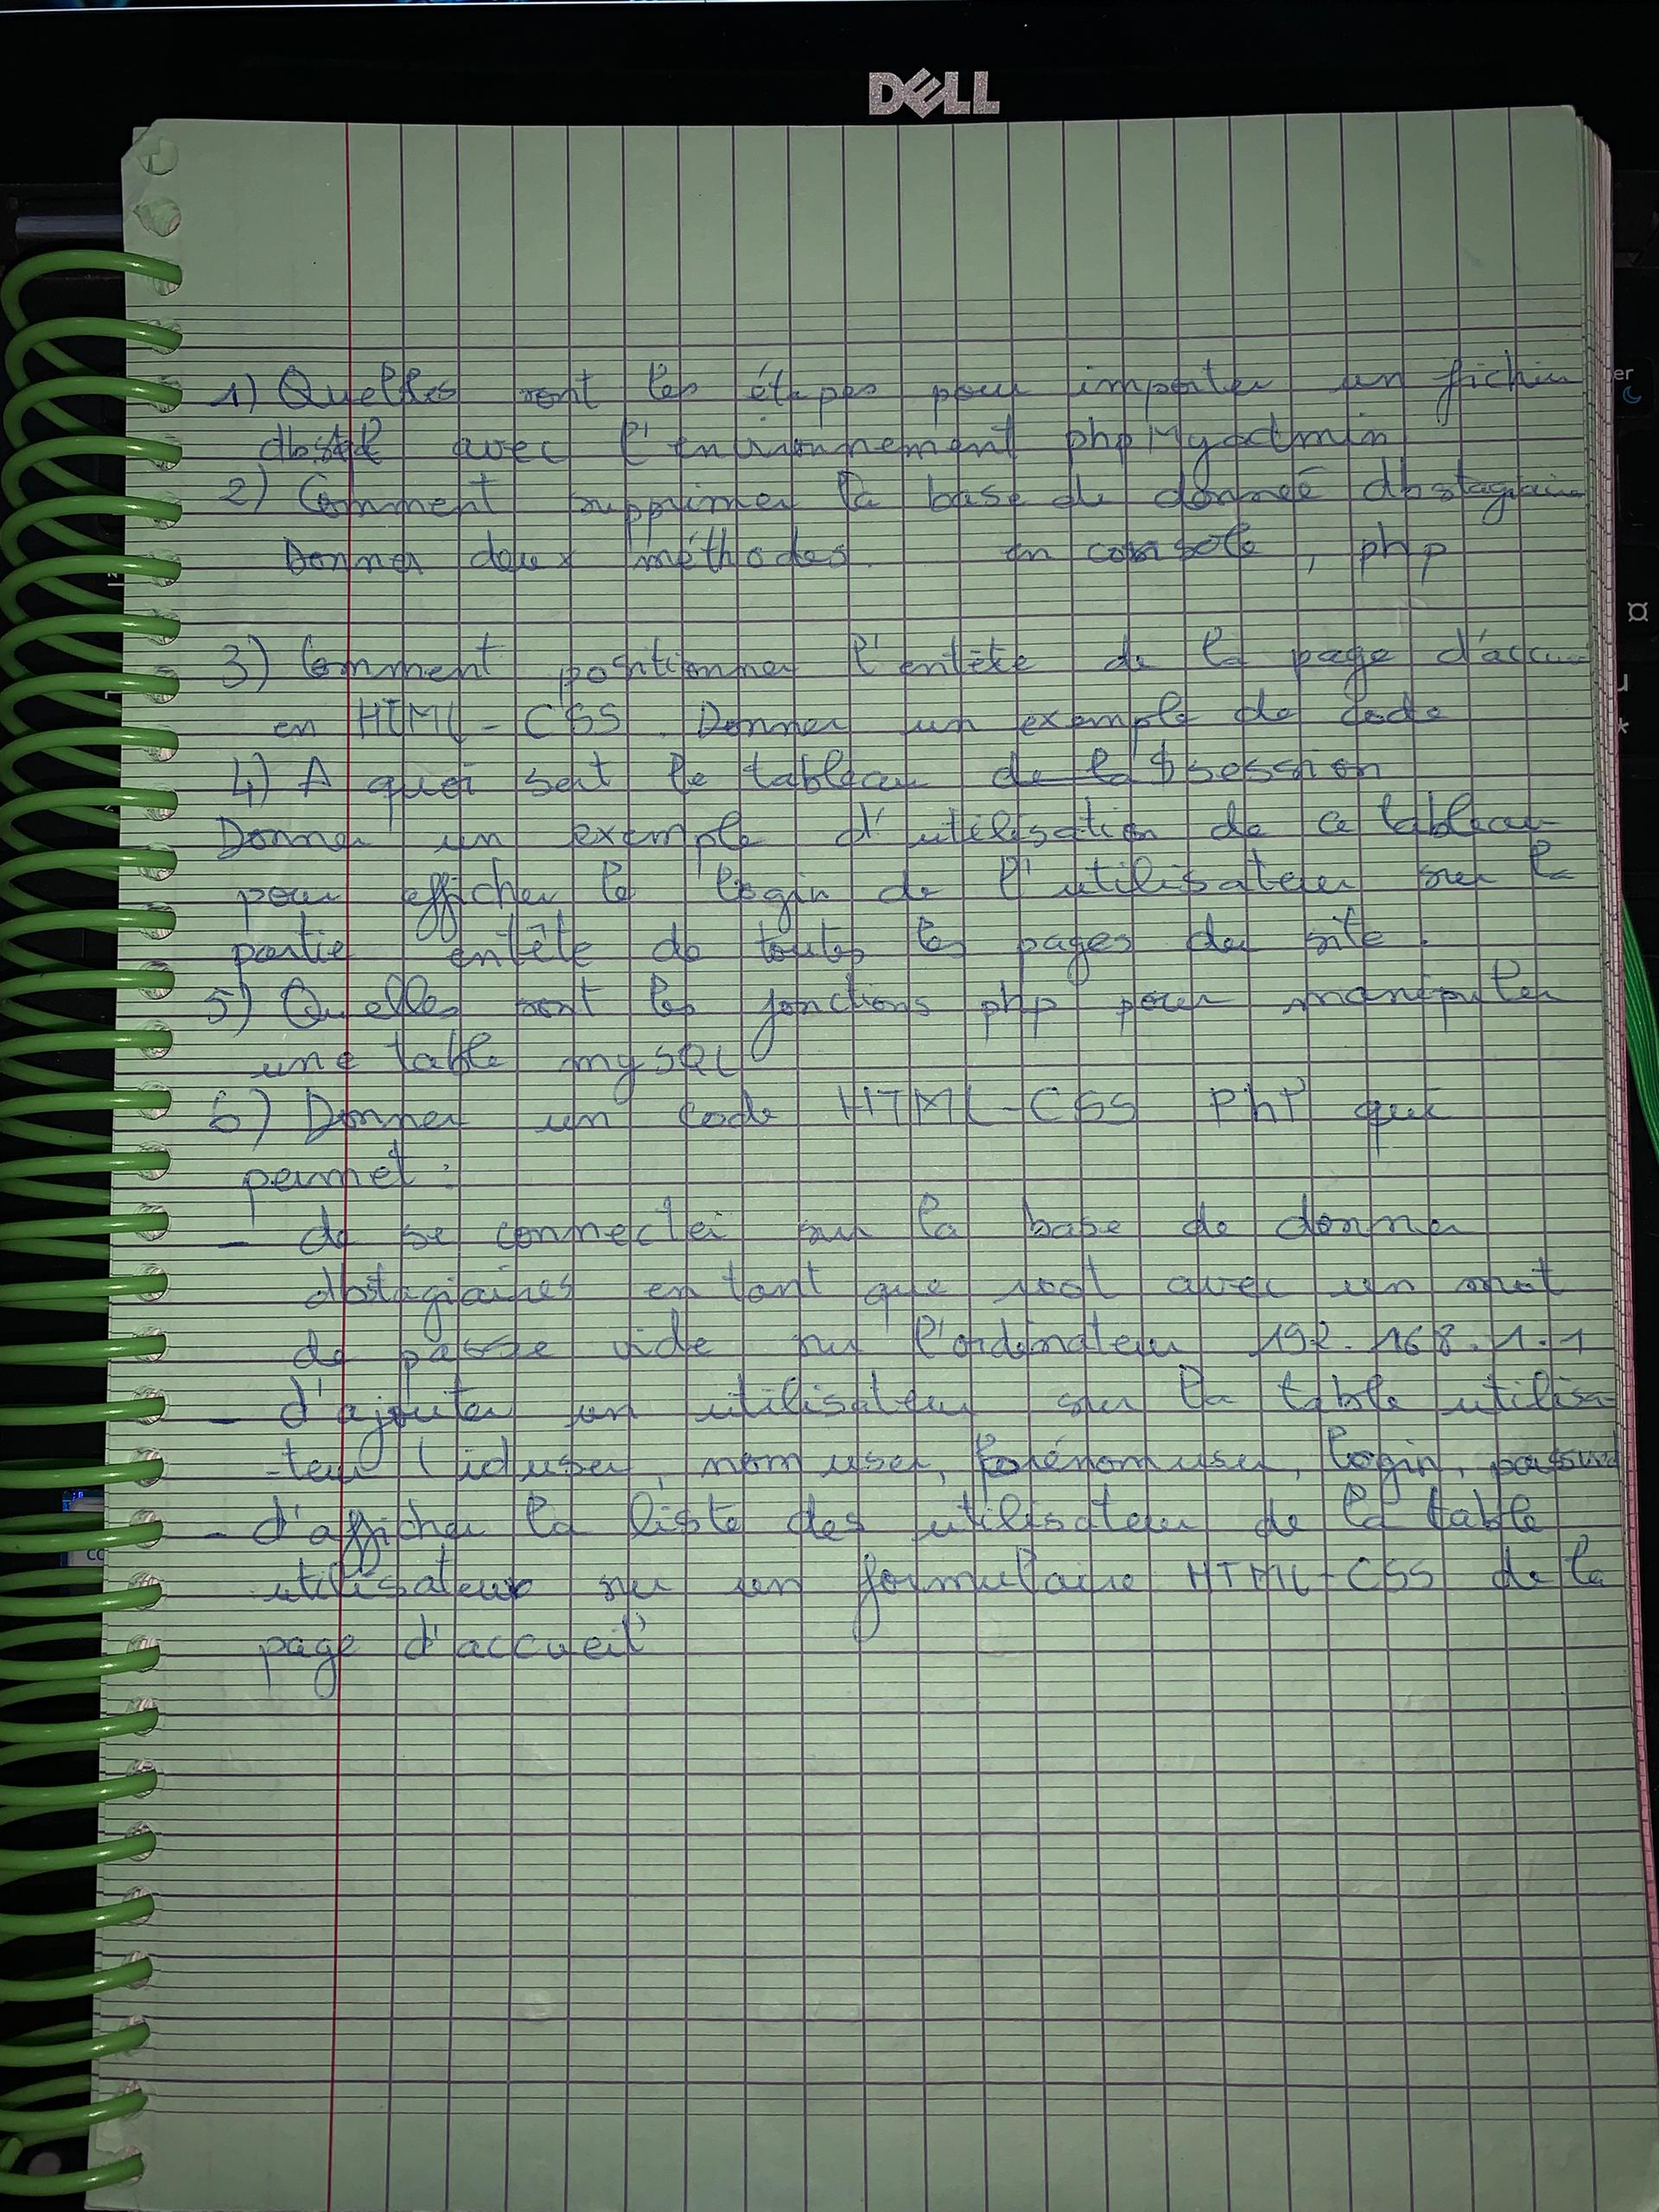 DELL
1) Quelles sont les étapes pour importer un fichier
avec l'environnement phpMyadmin
2) Comment supprimer la base de donneé dbstagiaire
Donner deux méthodes. en console, php
3) Comment positionner l'entête de la page d'accueil
en HTML-CSS. Donner un exemple de code
4) A quoi sert le tableau de la $session
Donner un exemple d'utilisation de ce tableau
pour afficher le login de l'utilisateur sur la
partie entête de toutes les pages du site.
5) Quelles sont les fonctions php pour manipuler
une table mysql
6) Donner un code HTML-CSS PHP qui
permet :
- de se connecter sur la base de donner
dbstagiaires en tant que root avec un mot
de passe vide sur l'ordinateur 192.168.1.1
- d'ajouter un utilisateur sur la table utilisa-
-teur (iduser, nomuser, prénomuser, login, password
- d'afficher la liste des utilisateur de la table
utilisateur sur un formulaire HTML-CSS de la
page d'accueil